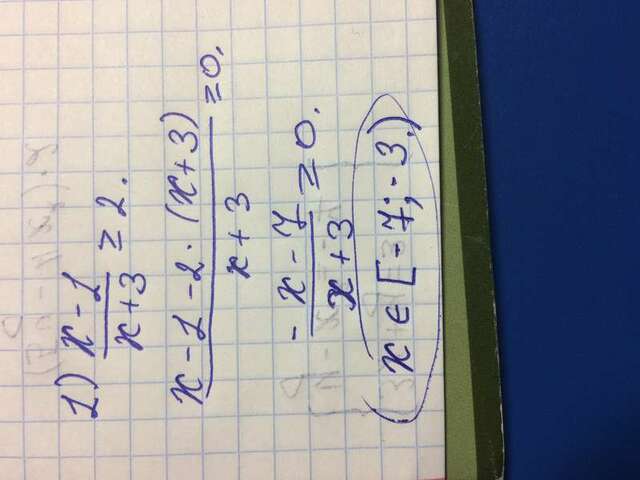 1) x-1/x+3 ≥ 2.
x-1-2·(x+3)/x+3 ≥0.
-x-7/x+3 ≥0.
x∈[-7;-3.)